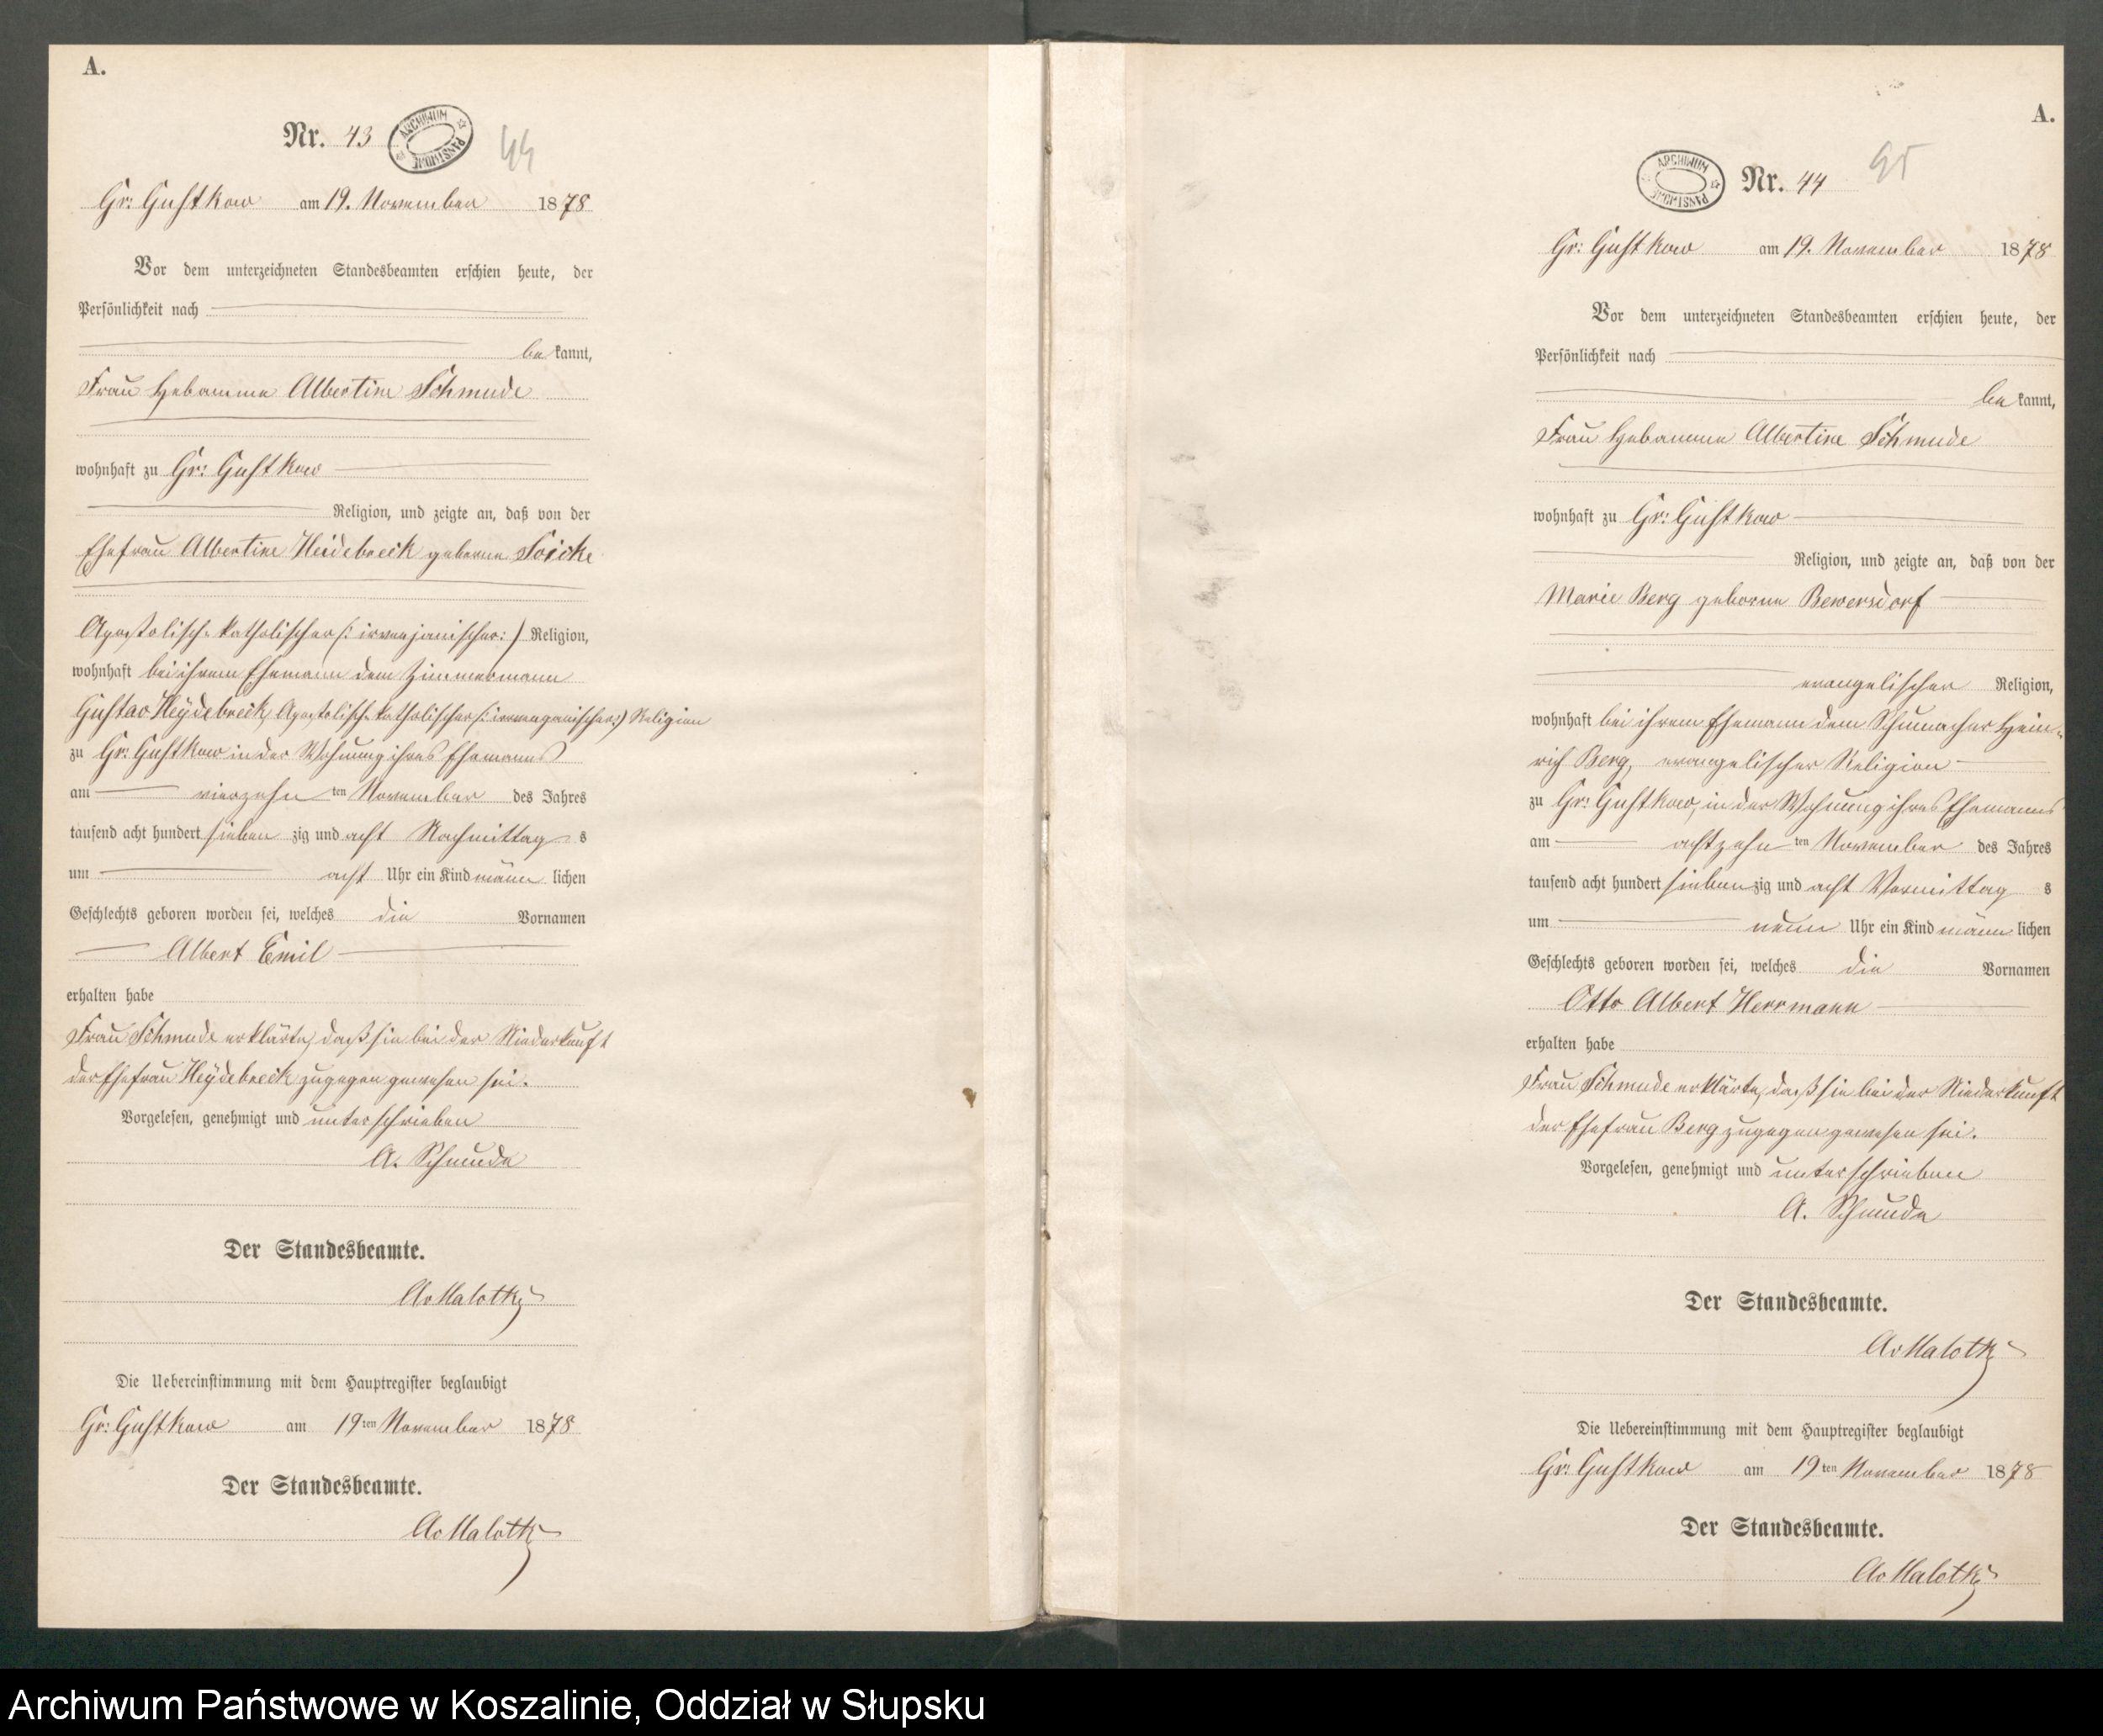 A.
Nr. 43
44
ARCHIWUM PAŃSTWOWE
Gr: Gustkow am 19. November 1878
Vor dem unterzeichneten Standesbeamten erschien heute, der
Persönlichkeit nach
be kannt,
Frau Hebamme Albertine Schmude
wohnhaft zu Gr: Gustkow
Religion, und zeigte an, daß von der
Ehefrau Albertine Heidebreck geborne
Apostolisch-katholischer (: irvenjanischer :) Religion,
wohnhaft bei ihrem Ehemann dem Zimmermann
Gustav Heÿdebreck, Apostolisch-katholischer (: irvenganischer :) Religion
zu Gr: Gustkow in der Wohnung ihres Ehemanns
am vierzehn ten November des Jahres
tausend acht hundert sieben zig und acht Nachmittag s
um acht Uhr ein Kind männ lichen
Geschlechts geboren worden sei, welches die Vornamen
Albert Emil
erhalten habe
Frau Schmude erklärte, daß sie bei der Niederkunft
der Ehefrau Heÿdebreck zugegen gewesen sei.
Vorgelesen, genehmigt und unterschrieben
A. Schmude
Der Standesbeamte.
AvMalotky
Die Uebereinstimmung mit dem Hauptregister beglaubigt
Gr: Gustkow am 19ten November 1878
Der Standesbeamte.
AvMalotky
A.
ARCHIWUM PAŃSTWOWE
Nr. 44
45
Gr: Gustkow am 19. November 1878
Vor dem unterzeichneten Standesbeamten erschien heute, der
Persönlichkeit nach
be kannt,
Frau Hebamme Albertine Schmude
wohnhaft zu Gr: Gustkow
Religion, und zeigte an, daß von der
Marie Berg geborne Bewersdorf
evangelischer Religion,
wohnhaft bei ihrem Ehemann dem Schumacher Hein-
rich Berg, evangelischer Religion
zu Gr: Gustkow, in der Wohnung ihres Ehemanns
am achtzehn ten November des Jahres
tausend acht hundert sieben zig und acht Vormittag s
um neun Uhr ein Kind männ lichen
Geschlechts geboren worden sei, welches die Vornamen
Otto Albert Herrmann
erhalten habe
Frau Schmude erklärte, daß sie bei der Niederkunft
der Ehefrau Berg zugegen gewesen sei.
Vorgelesen, genehmigt und unterschrieben
A. Schmude
Der Standesbeamte.
AvMalotky
Die Uebereinstimmung mit dem Hauptregister beglaubigt
Gr: Gustkow am 19ten November 1878
Der Standesbeamte.
AvMalotky
Archiwum Państwowe w Koszalinie, Oddział w Słupsku